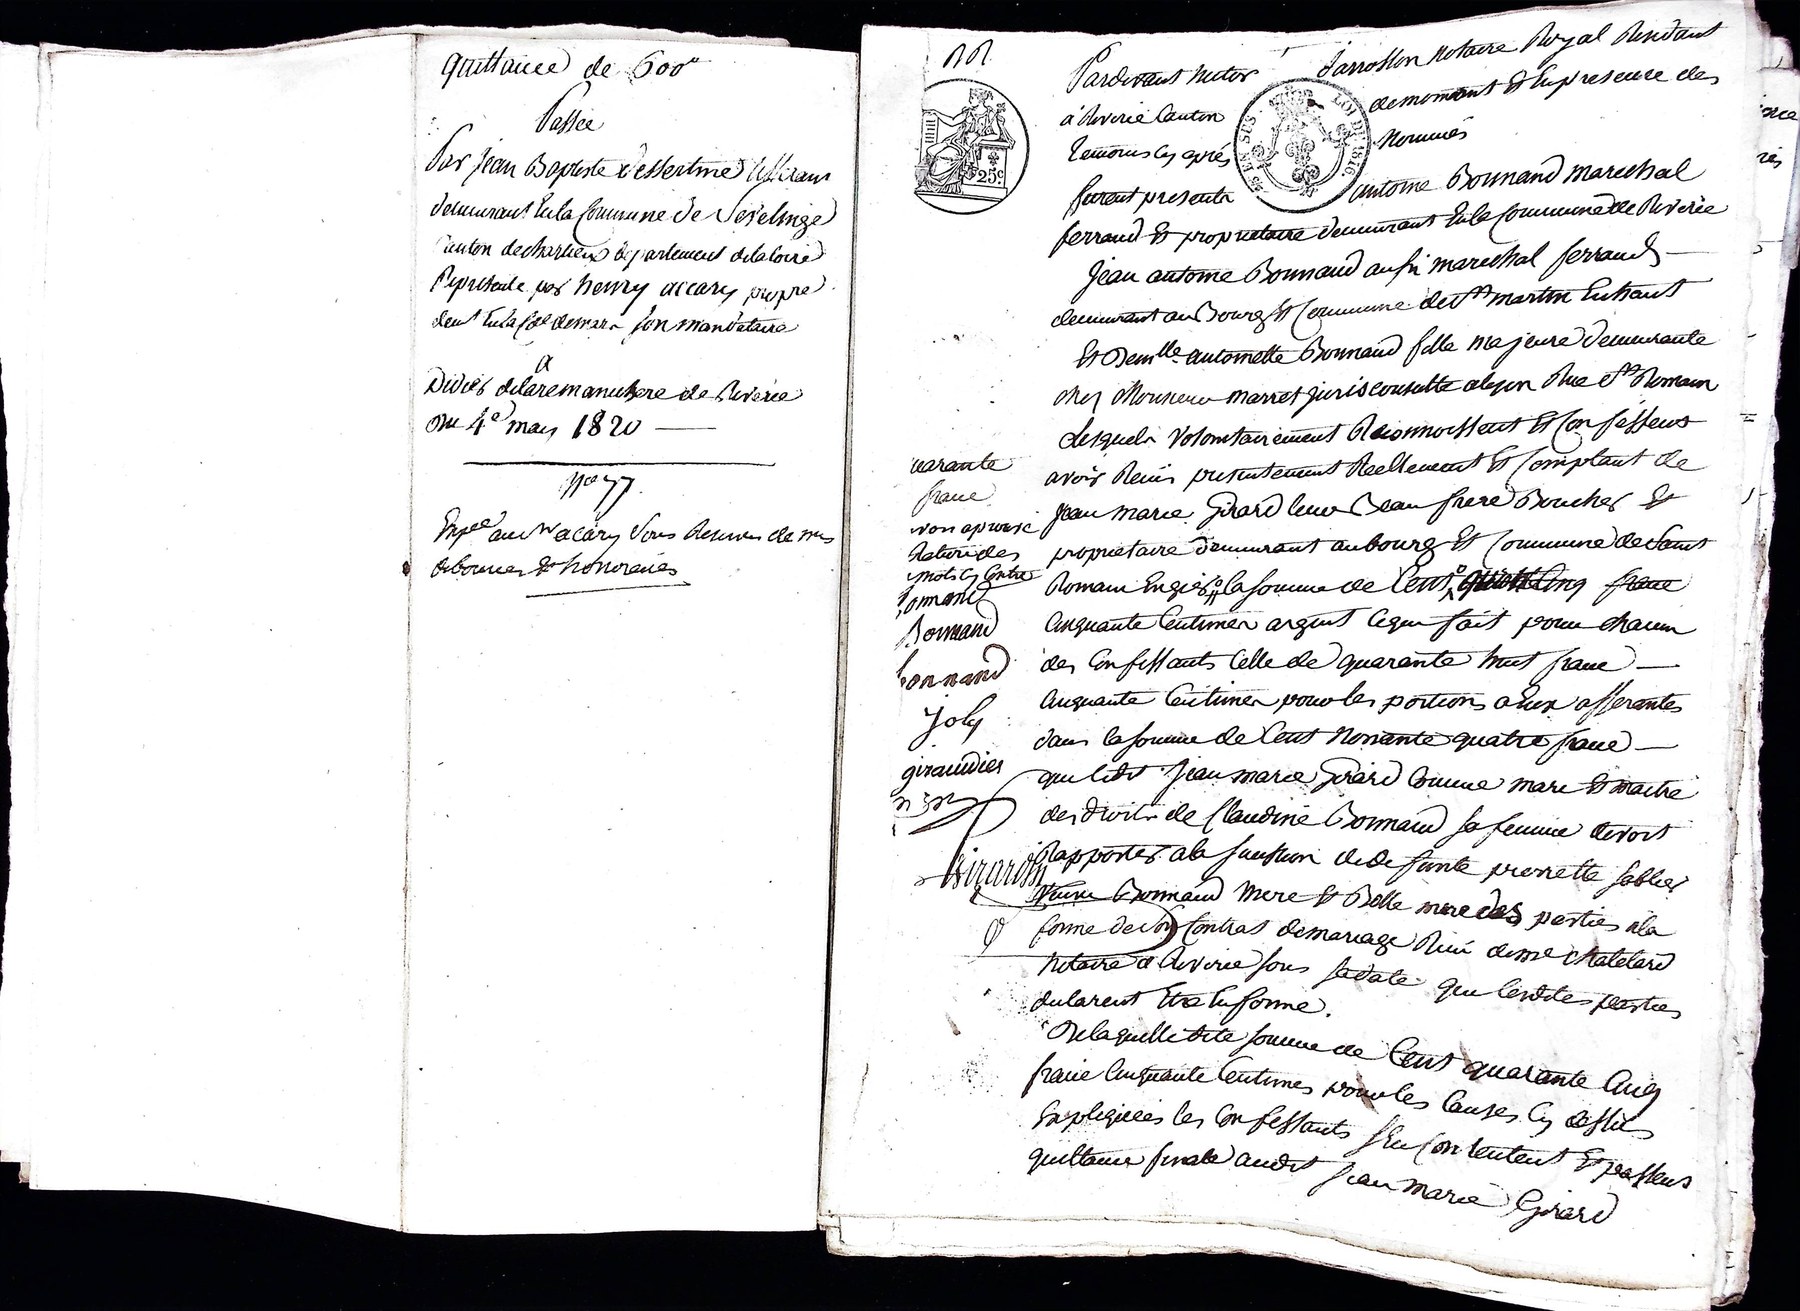 quittance de 600#
Passée
Par jean Baptiste dessertine
demeurant En la Commune de Sevelinge
Canton de charlieu departement de la loire
Representé par henry accary propre
demt En la Cne de mars son mandataire
a
Didier delaremanichere de Riverie
Du 4e mars 1820
No 77
Expee au sr acary sous Reserves de mes
debources & honoraires
Pardevant Jarrosson notaire Royal Residant
a Riverie Canton demornant Et En presence des
temoins cy aprés Nommés
furent presents antoine Bonnand marechal
ferrand Et proprietaire demeurant En la Commune de Riverie
Jean antoine Bonnand aussi marechal ferrand
demeurant au Bourg Et Commune de st martin En haut
Et Demlle antoinette Bonnand fille majeure demeurante
chez Monsieur marret jurisconsulte a lyon Rue st Romain
Lesquels Volontairement Reconnoissent Et Confessent
avoir Reçu presentement Reellement Et Comptant de
Jean marie Girard leur Beau frere Boucher Et
proprietaire demeurant au bourg Et Commune de Saint
Romain En giers la somme de Cent Cinq franc
Cinquante Centimes argent Ce qui fait pour chacun
des Confessants Celle de quarante huit franc
Cinquante Centimes pour les portions a Eux afferantes
dans la somme de Cent Nonante quatre franc
que ledit Jean marie Girard Comme mari Et maitre
des droits de Claudine Bonnand sa femme devoit
Rapporter a la succession de defunte pierrette
Veuve Bonnand mere Et Belle mere des parties a la
forme de son Contrat de mariage Reçu de me chatelard
Notaire a Riverie sous sa date que lesdites parties
declarent Etre En forme.
De laquelle dite somme de Cent quarante Cinq
franc Cinquante Centimes pour les Causes Cy dessus
Expliquées les Confessants s'En Contentent Et passent
quittance finale audit Jean marie Girard
uarante
franc
non aprouvé
Nature des
mots cy Contre
Bonnand
Bonnand
Bonnand
joly
giraudier
Girard
25c
25 EN SUS
LOI DE 1816